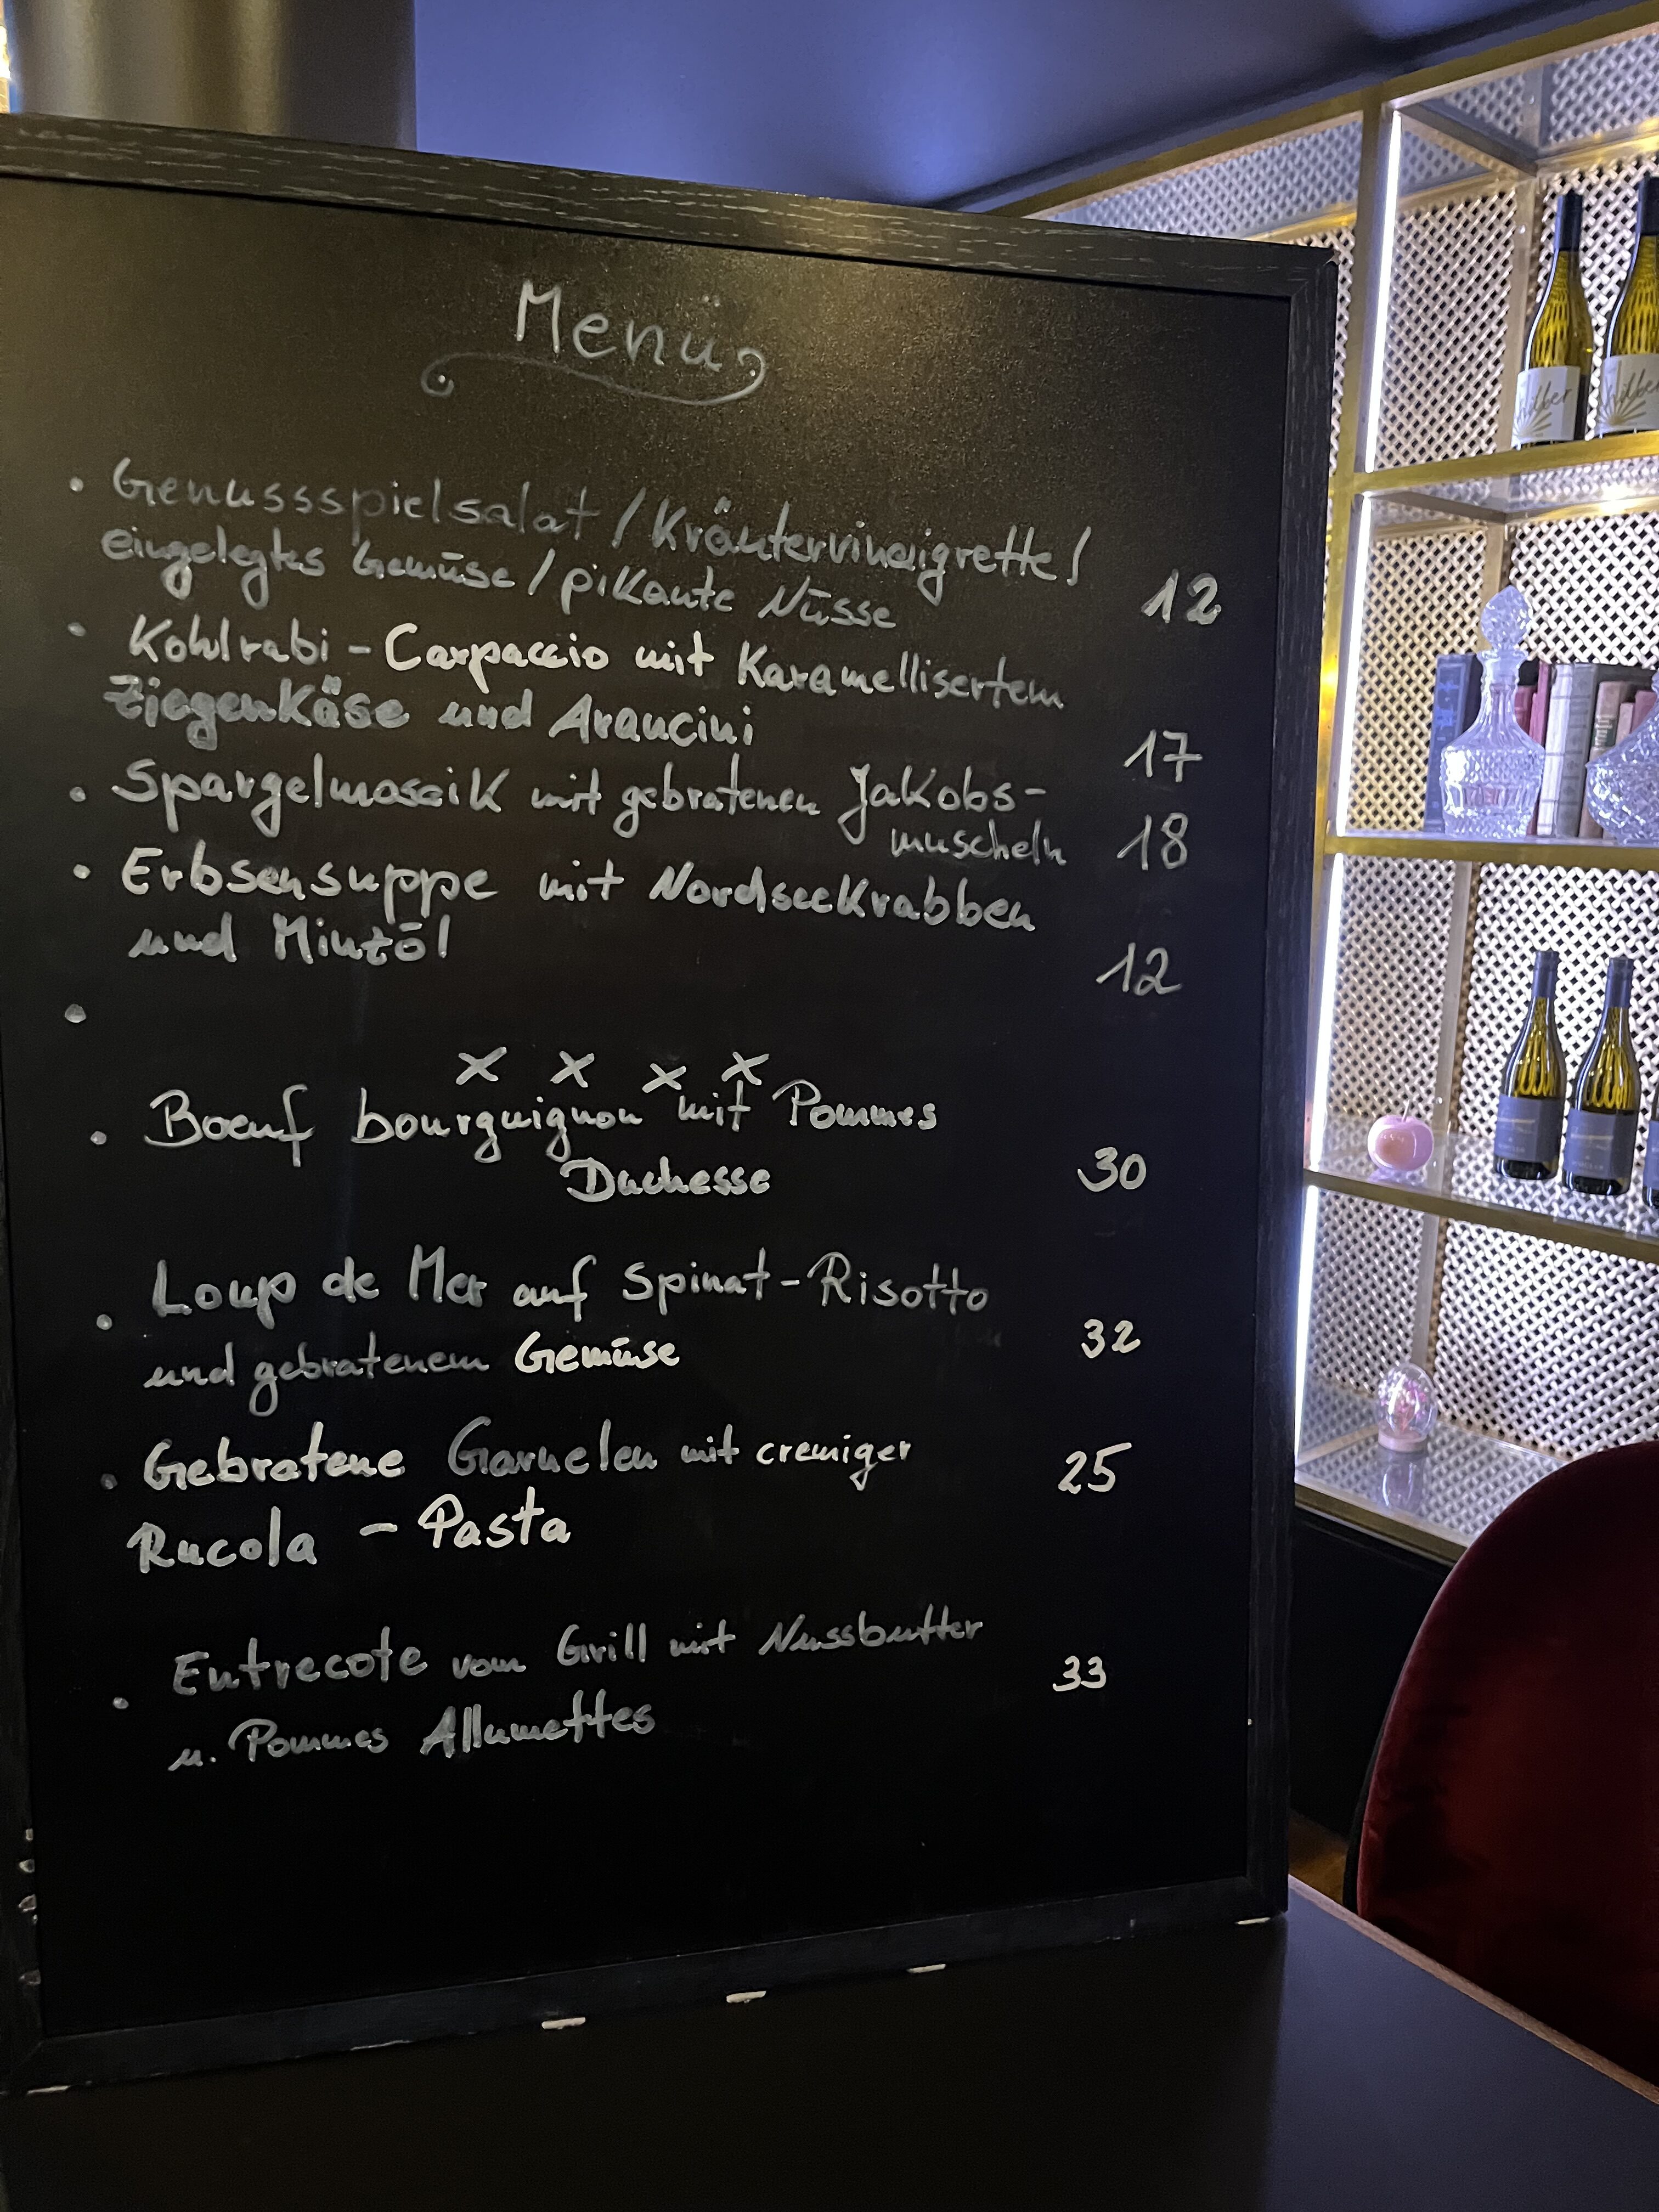 Menü
• Genussspielsalat / Kräutervinaigrette /
eingelegtes Gemüse / pikante Nüsse 12
• Kohlrabi - Carpaccio mit Karamellisertem
Ziegenkäse und Arancini 17
• Spargelmosaik mit gebratenen Jakobs-
muscheln 18
• Erbsensuppe mit Nordseekrabben
und Minzöl 12
•
x x x x
• Boeuf bourguignon mit Pommes
Duchesse 30
• Loup de Mer auf Spinat-Risotto
und gebratenem Gemüse 32
• Gebratene Garnelen mit cremiger 25
Rucola - Pasta
• Entrecote vom Grill mit Nussbutter
u. Pommes Allumettes 33